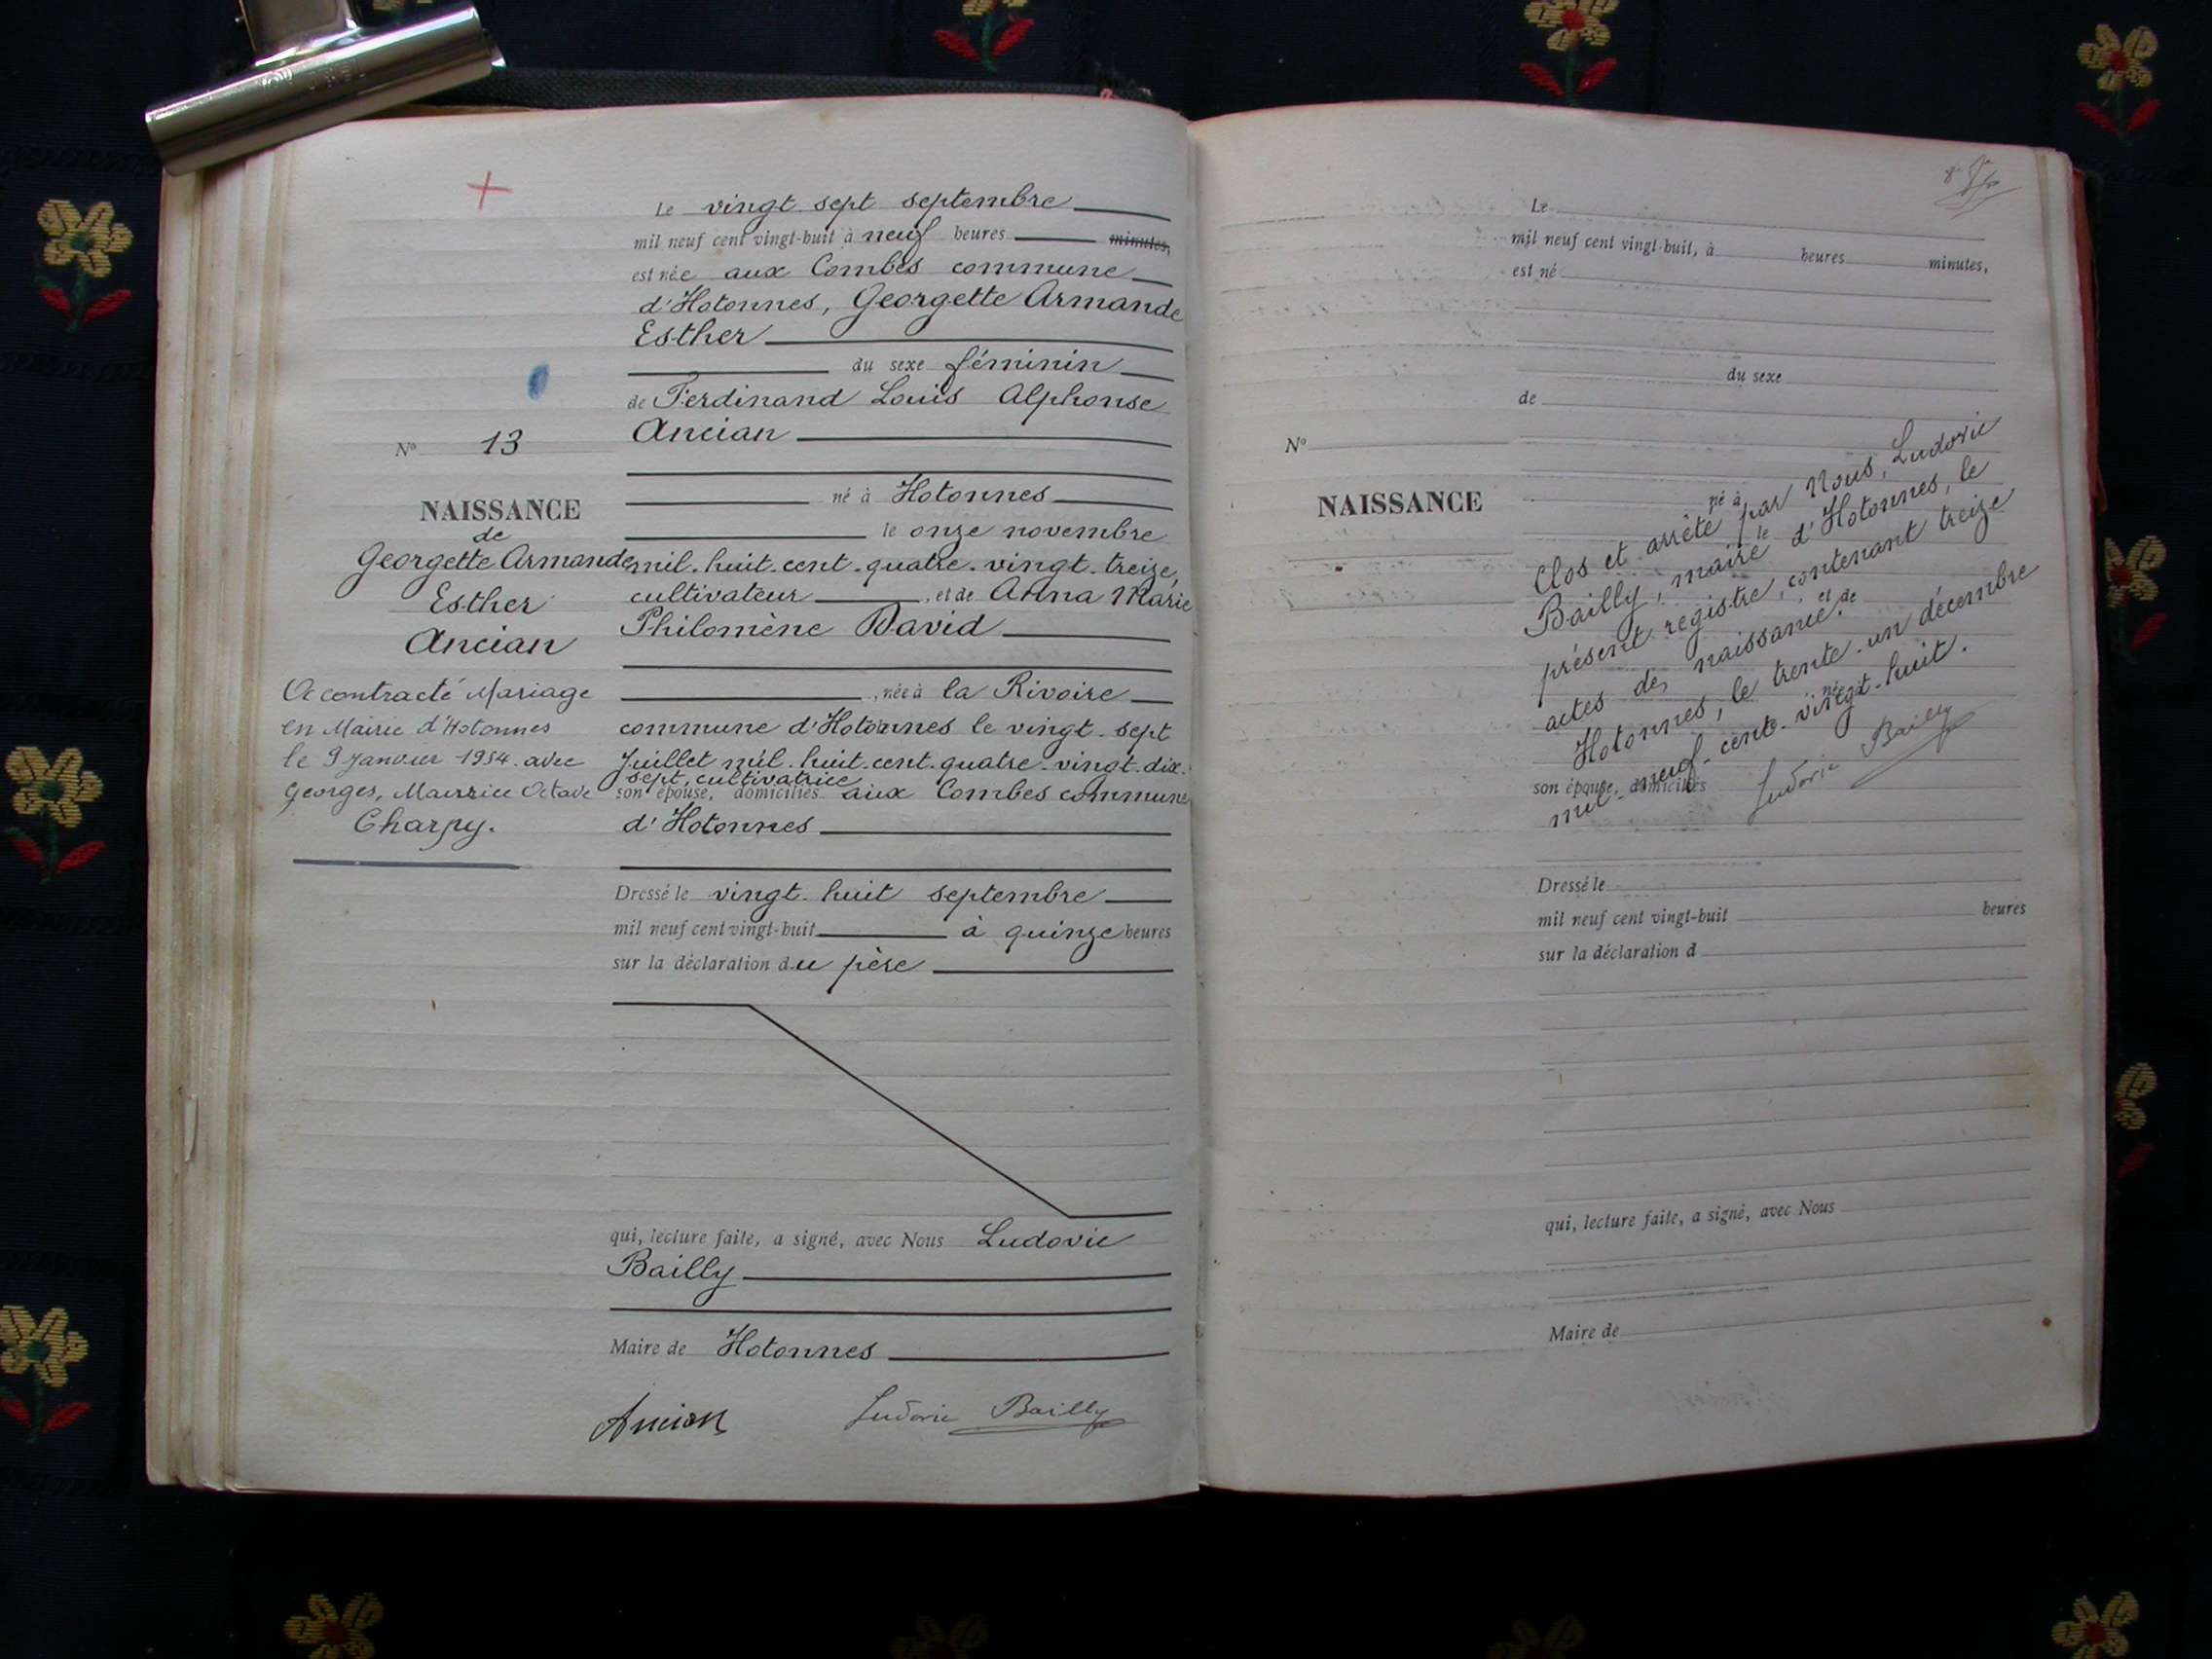 Le vingt sept septembre
mil neuf cent vingt-huit à neuf heures minutes,
est née aux Combes commune
d'Hotonnes, Georgette Armande
Esther
du sexe féminin
de Ferdinand Louis Alphonse
Ancian
né à Hotonnes
le onze novembre
mil. huit. cent. quatre. vingt. treize,
cultivateur , et de Anna Marie
Philomène David
, née à la Rivoire
commune d'Hotonnes le vingt. sept
Juillet mil. huit. cent. quatre. vingt. dix.
sept, cultivatrice
son épouse, domiciliés aux Combes commune
d'Hotonnes
Dressé le vingt. huit septembre
mil neuf cent vingt-huit à quinze heures
sur la déclaration du père
qui, lecture faite, a signé, avec Nous Ludovic
Bailly
Maire de Hotonnes
Ancian Ludovic Bailly
N° 13
NAISSANCE
de
Georgette Armande
Esther
Ancian
A contracté Mariage
en Mairie d'Hotonnes
le 9 Janvier 1954. avec
Georges, Maurice Octave
Charpy.
Le
mil neuf cent vingt-huit, à heures minutes,
est né
du sexe
de
N°
NAISSANCE
né à
le
et de
né
son épouse, domiciliés
Clos et arrêté par Nous, Ludovic
Bailly, maire d'Hotonnes, le
présent registre, contenant treize
actes de naissance.
Hotonnes, le trente. un décembre
mil. neuf. cent. vingt. huit.
Ludovic Bailly
Dressé le
mil neuf cent vingt-huit heures
sur la déclaration d
qui, lecture faite, a signé, avec Nous
Maire de